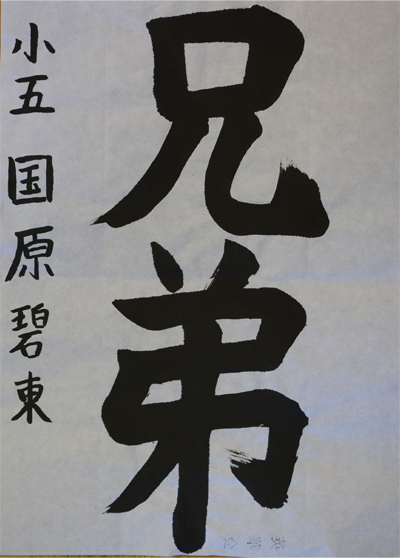 兄弟
小五 国原碧東